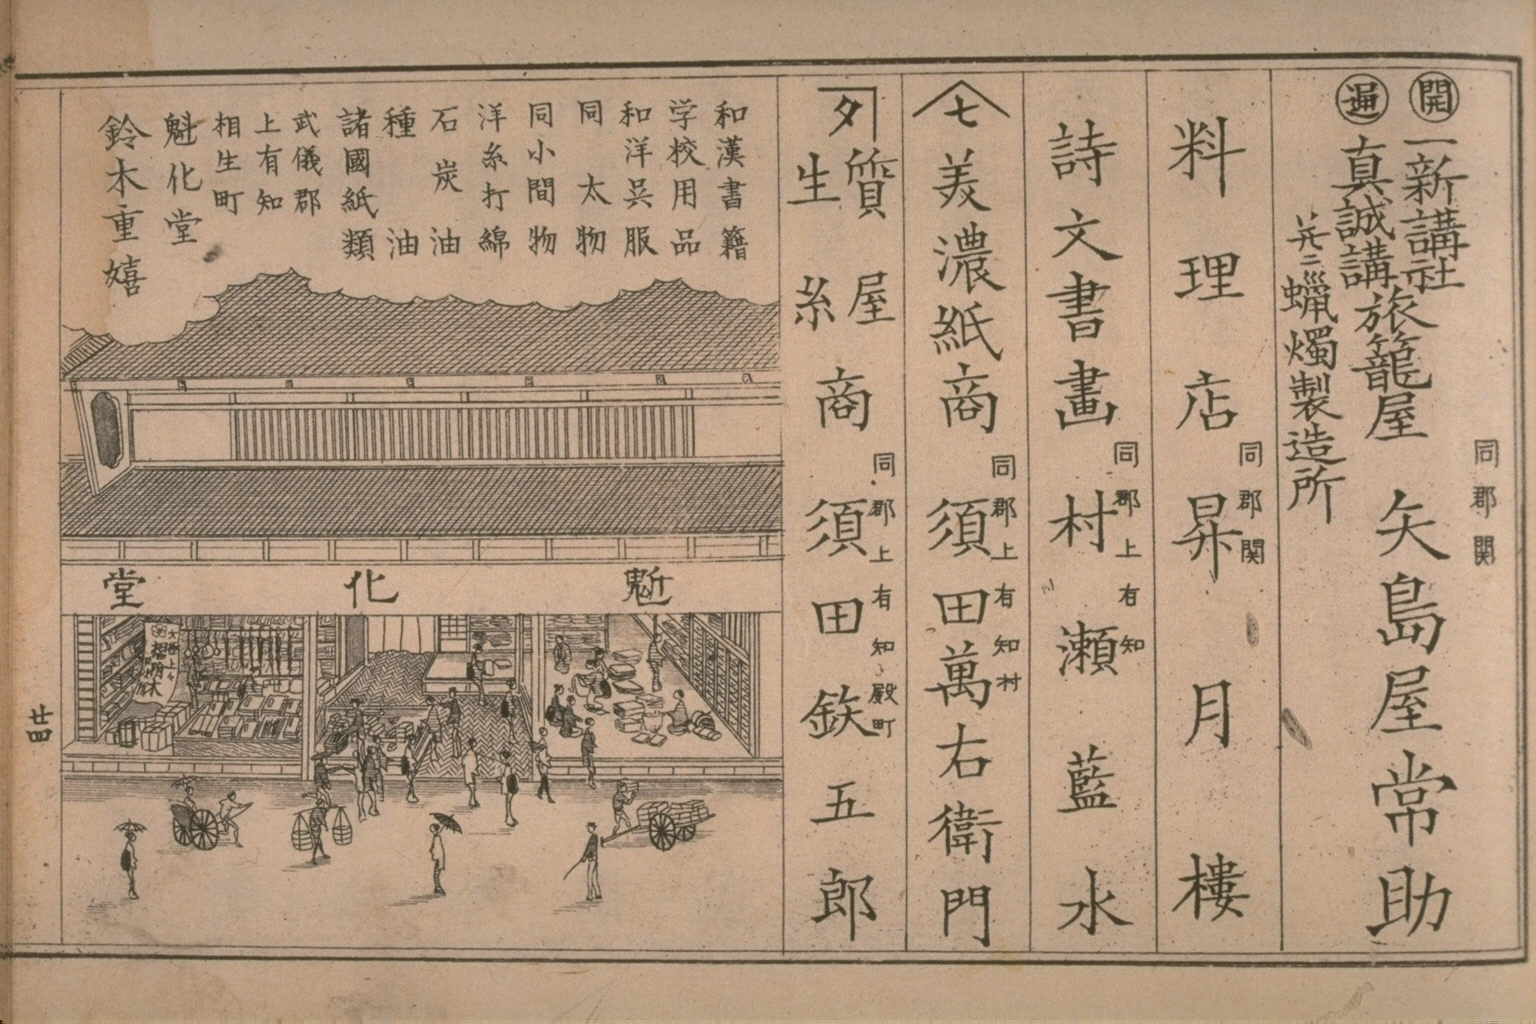 開
一新講社
逓
真誠講
旅籠屋
并ニ蝋燭製造所
同郡関
矢島屋常助
料理店
同郡関
昇月樓
詩文書畫
同郡上有知
村瀬藍水
七
美濃紙商
同郡上有知村
須田萬右衛門
夕
質屋
生糸商
同郡上有知殿町
須田鉃五郎
和漢書籍
学校用品
和洋呉服
同太物
同小間物
洋糸打綿
石炭油
種油
諸國紙類
武儀郡
上有知
相生町
魁化堂
鈴木重嬉
魁化堂
廿四